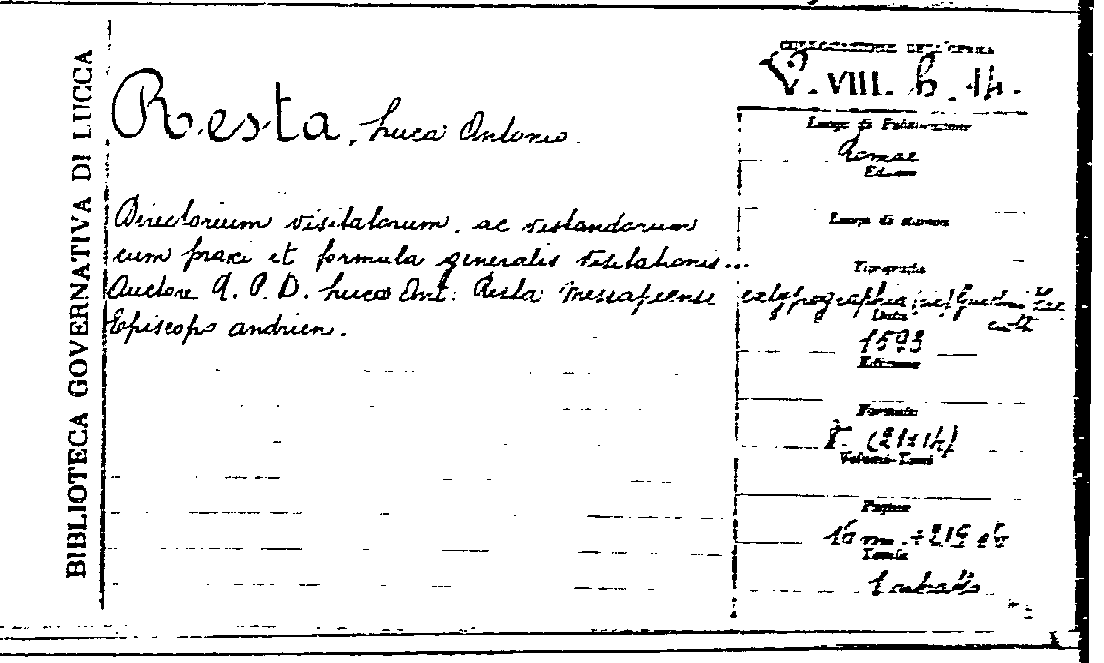 BIBLIOTECA GOVERNATIVA DI LUCCA
COLLOCAZIONE DELL'OPERA
V. VIII. b. 14.
Resta, Luca Antonio.
Luogo di Pubblicazione
Romae
Directorium visitatorum, ac visitandorum
cum praxi et formula generalis visitationis...
Auctore R. P. D. Luca Ant: Resta Messapiense
Episcopo andrien.
Luogo di stampa
Tipografia
ex typographia
Data
1593
Edizione
Formato
8. (21x14)
Volumi-Tomi
Pagine
16 nn. + 216
Tavole